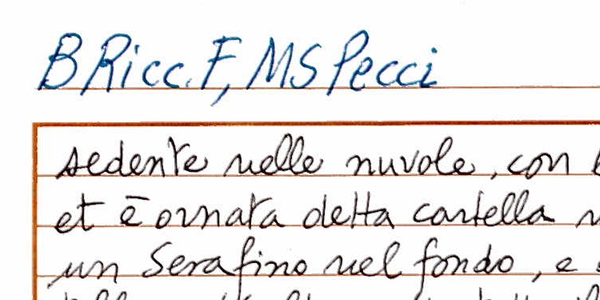 B Ricc. F, MS Pecci
sedente nelle nuvole, con
et ē ornata detta cartella
un Serafino nel fondo, e